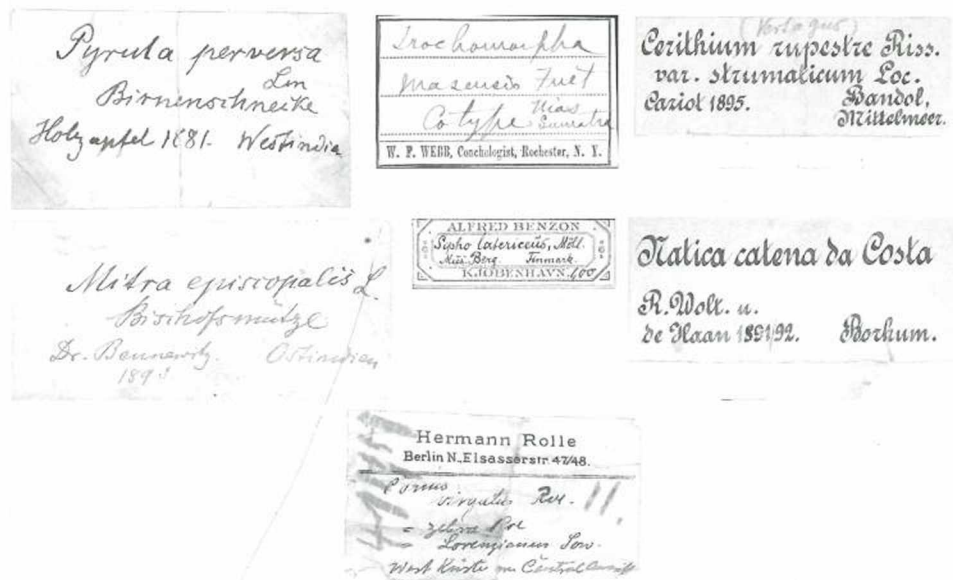 Pyrula perversa
Lin
Birnenschnecke
Holzapfel 1881. Westindien
Trochomorpha
Cotype Nias
Sumatra
W. F. WEBB, Conchologist, Rochester, N. Y.
(Vertagus)
Cerithium rupestre Riss.
var. strumaticum Loc.
Cariot 1895. Bandol,
Mittelmeer.
Mitra episcopalis L.
Bischofsmütze
Dr. Bennewitz. Ostindien
ALFRED BENZON
Sipho latericeus, Möll.
Mus. Berg. Finmark.
KJØBENHAVN. 400
Natica catena da Costa
R. Wolt. u.
de Haan 1891/92. Borkum.
Hermann Rolle
Berlin N., Elsasserstr. 47/48.
Conus
virgatus Rve. 11.
= zebra Rve
= Lorenzianus Sow.
West Küste